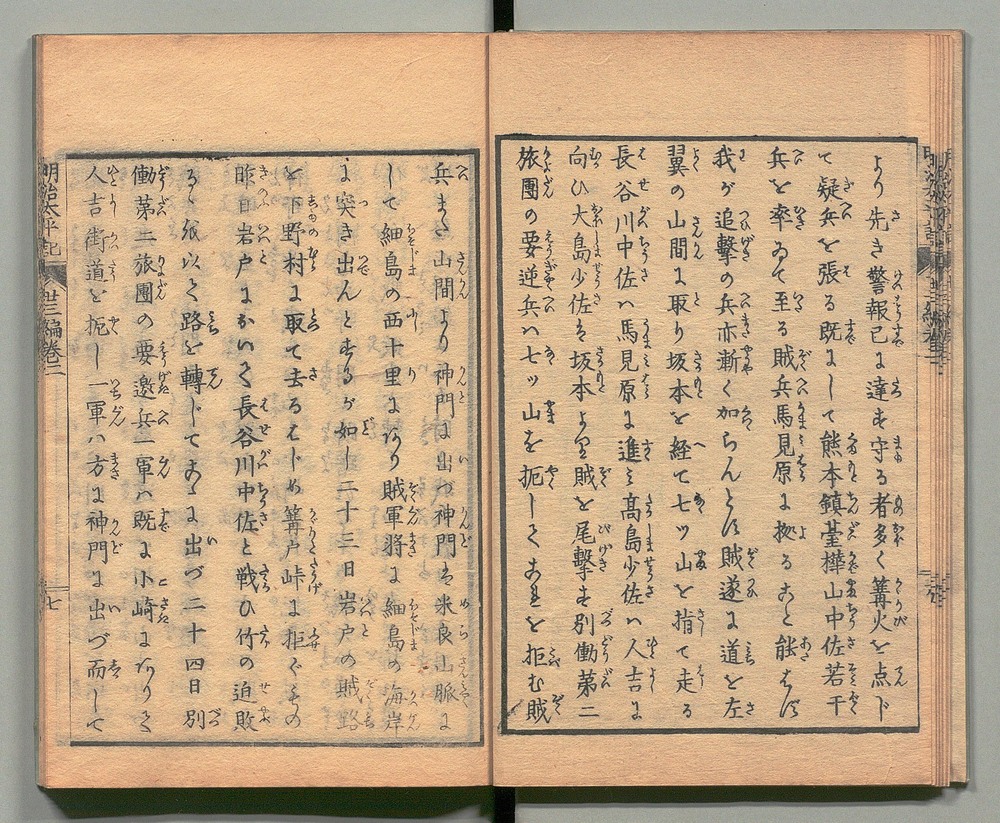 より先き警報已に達し守る者多く篝火を点じ
て疑兵を張る既にして熊本鎮臺樺山中佐若干
兵を率ゐて至る賊兵馬見原に拠ること能はず
我が追撃の兵亦漸く加らんとす賊遂に道を左
翼の山間に取り坂本を経て七ッ山を指て走る
長谷川中佐ハ馬見原に進ミ髙島少佐ハ人吉に
向ひ大島少佐は坂本より賊を尾撃す別働第二
旅團の要逆兵ハ七ッ山を扼してこれを拒む賊
兵また山間より神門に出づ神門は米良山脈に
して細島の西十里にあり賊軍将に細島の海岸
に突き出んとするが如し二十三日岩戸の賊路
を下野村に取て去るはじめ篝戸峠に拒ぐもの
昨日岩戸において長谷川中佐と戦ひ竹の迫敗
るゝ依以て路を轉じてこゝに出づ二十四日別
働第二旅團の要邀兵一軍ハ既に小崎にありて
人吉街道を扼し一軍ハ方に神門に出づ而して
明治太平記
廿三編巻二
七